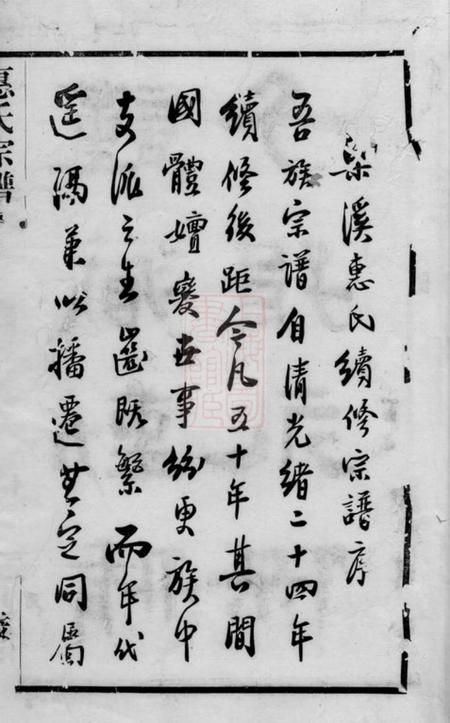 梁溪惠氏續修宗譜序
吾族宗譜自清光緒二十四年
續修後距今凡五十年其間
國體嬗變世事紛更族中
支派之生齒既繁而年代
遥隔兼以播遷無定同屬
惠氏宗譜